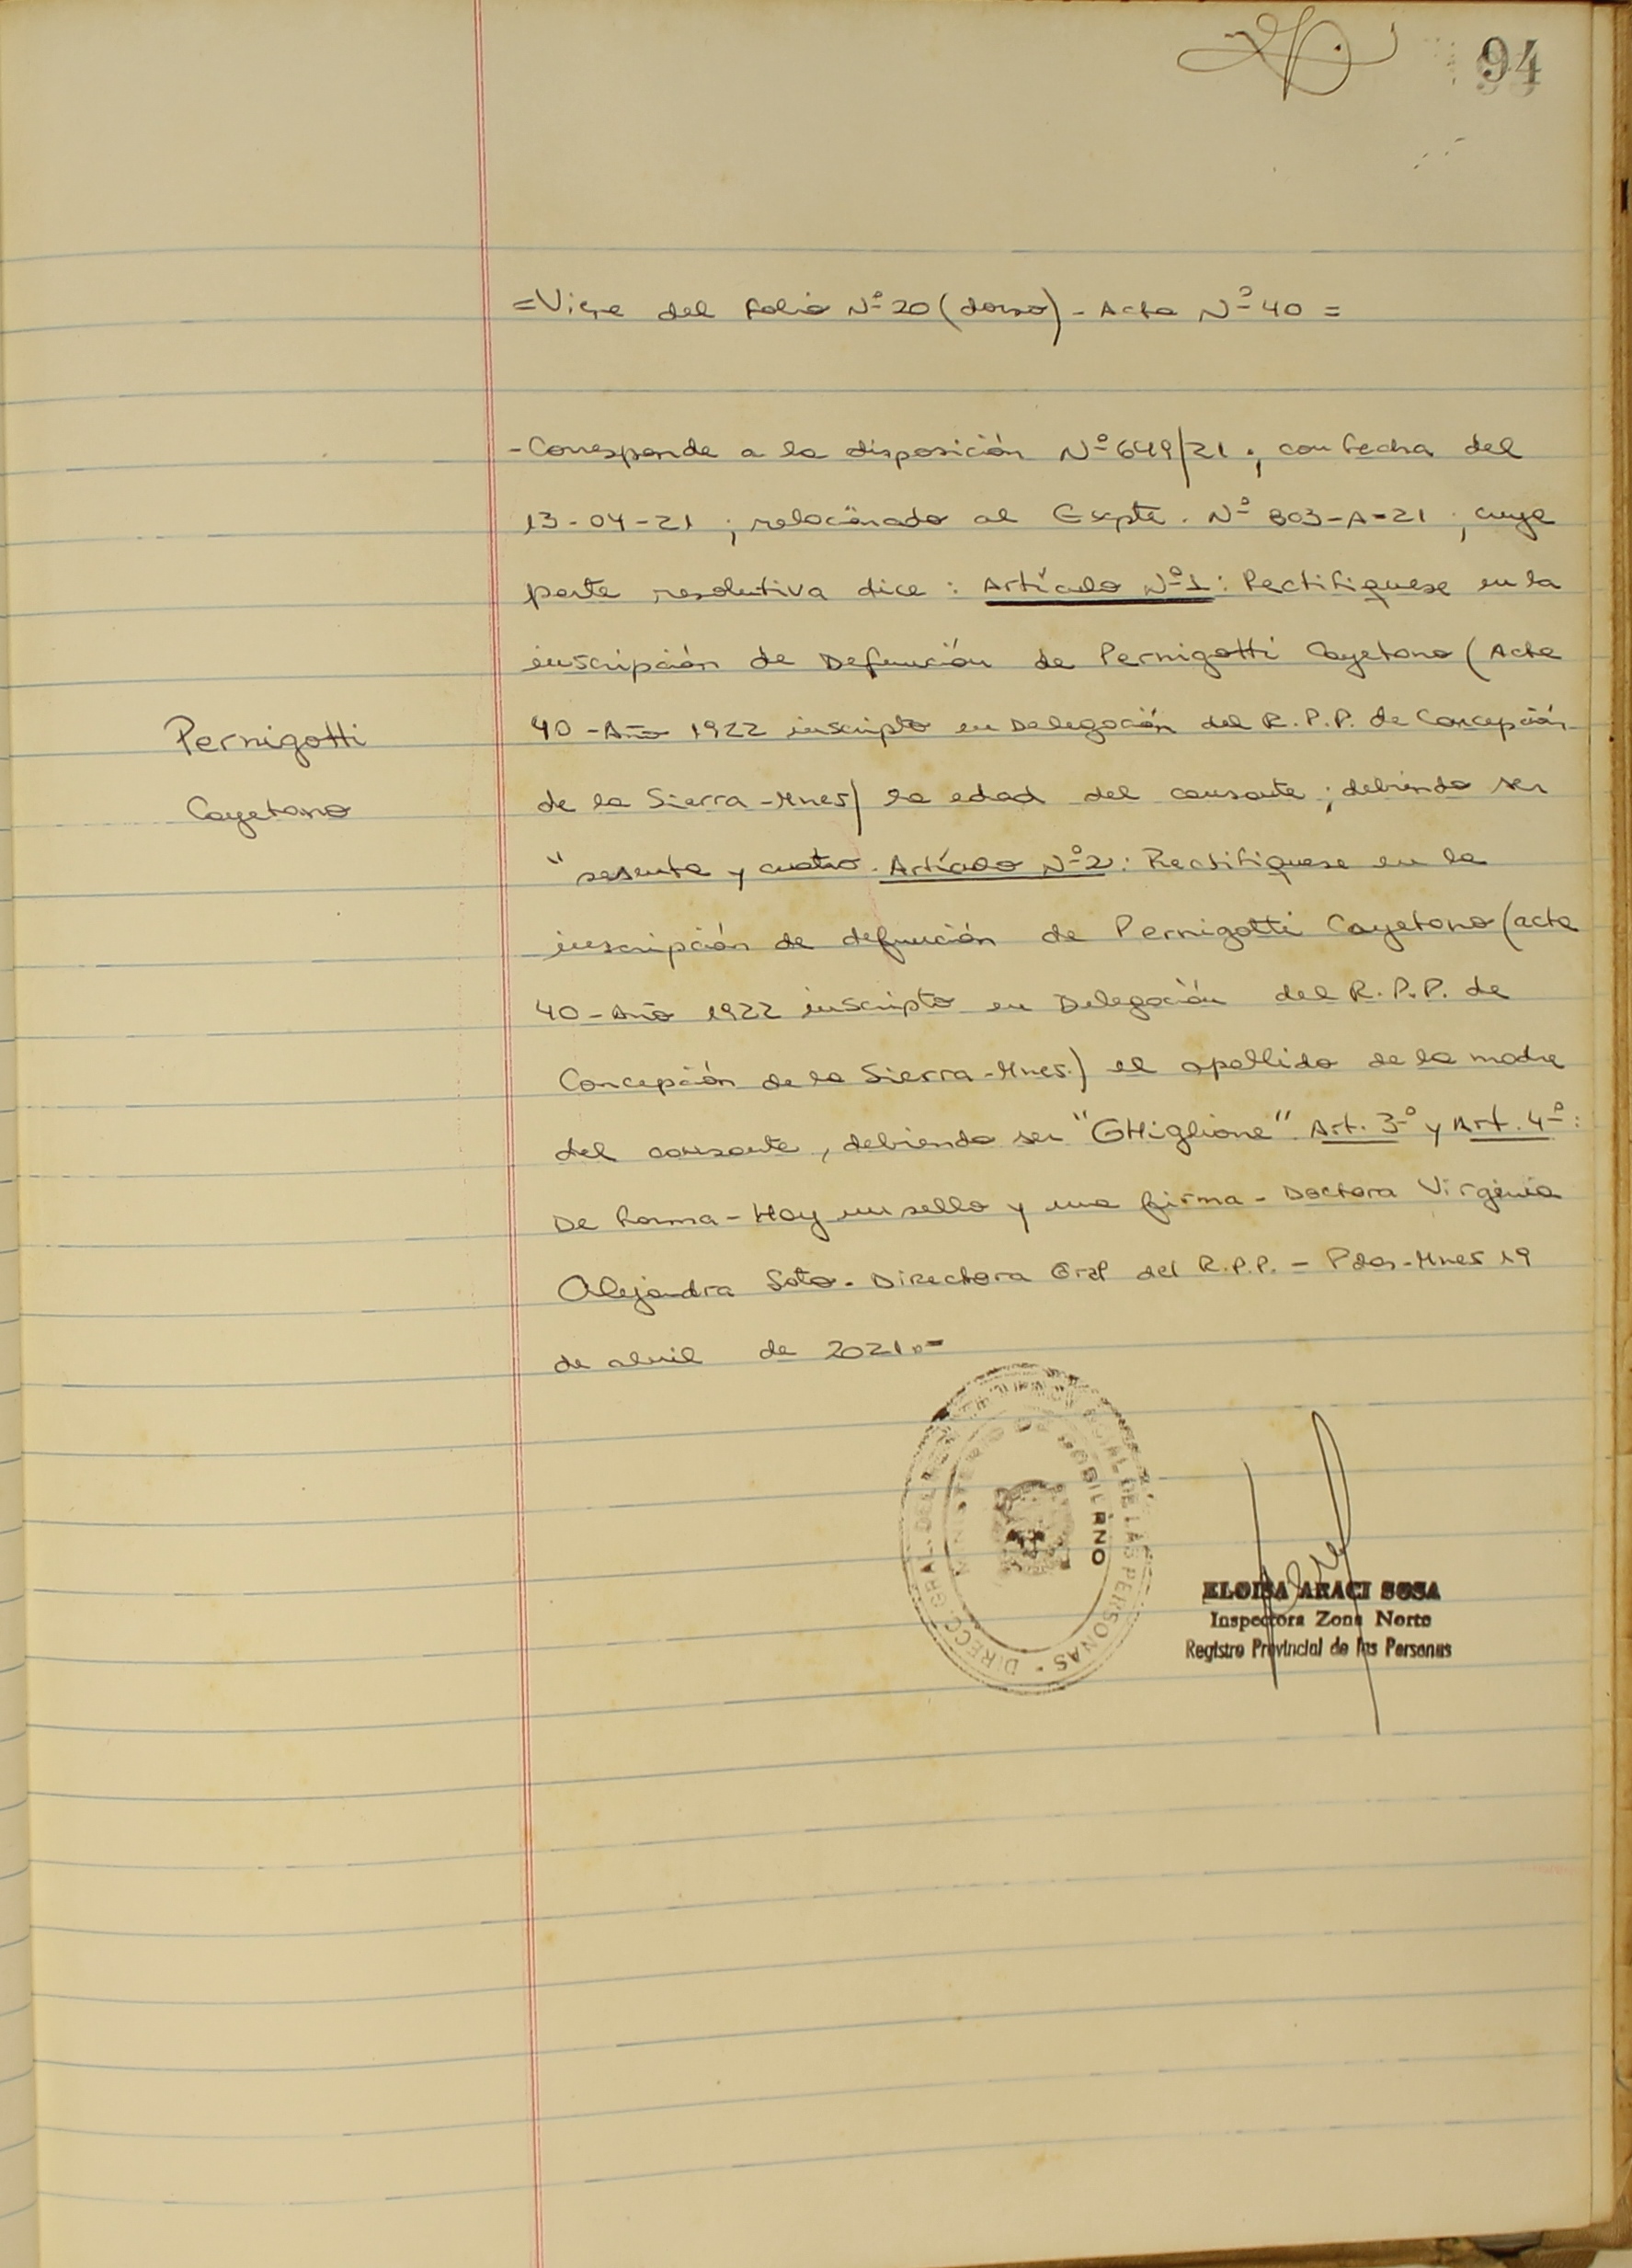 94
=Viene del folio Nº 20 (dorso) - Acta Nº 40 =
-Corresponde a la disposición Nº 649/21 ; con fecha del
13-04-21 ; relacionado al Expte. Nº 803-A-21 ; cuya
parte resolutiva dice : Artículo Nº 1: Rectifiquese en la
inscripción de Defunción de Pernigotti Cayetano (Acta
Pernigotti
40 -Año 1922 inscripto en Delegación del R.P.P. de Concepción
Cayetano
de la Sierra -Mnes) la edad del causante ; debiendo ser
"sesenta y cuatro. Artículo Nº 2: Rectifiquese en la
inscripción de defunción de Pernigotti Cayetano (acta
40 -Año 1922 inscripto en Delegación del R.P.P. de
Concepción de la Sierra -Mnes.) el apellido de la madre
del causante, debiendo ser "GHiglione" Art. 3º y Art. 4º:
De forma - Hay un sello y una firma - Doctora Virginia
Alejandra Soto. Directora Gral del R.P.P. - Pdas-Mnes 19
de abril de 2021.-
DIRECC. GRAL. DEL REGISTRO PROVINCIAL DE LAS PERSONAS
MINISTERIO DE GOBIERNO
ELOISA ARACI SOSA
Inspectora Zona Norte
Registro Provincial de las Personas